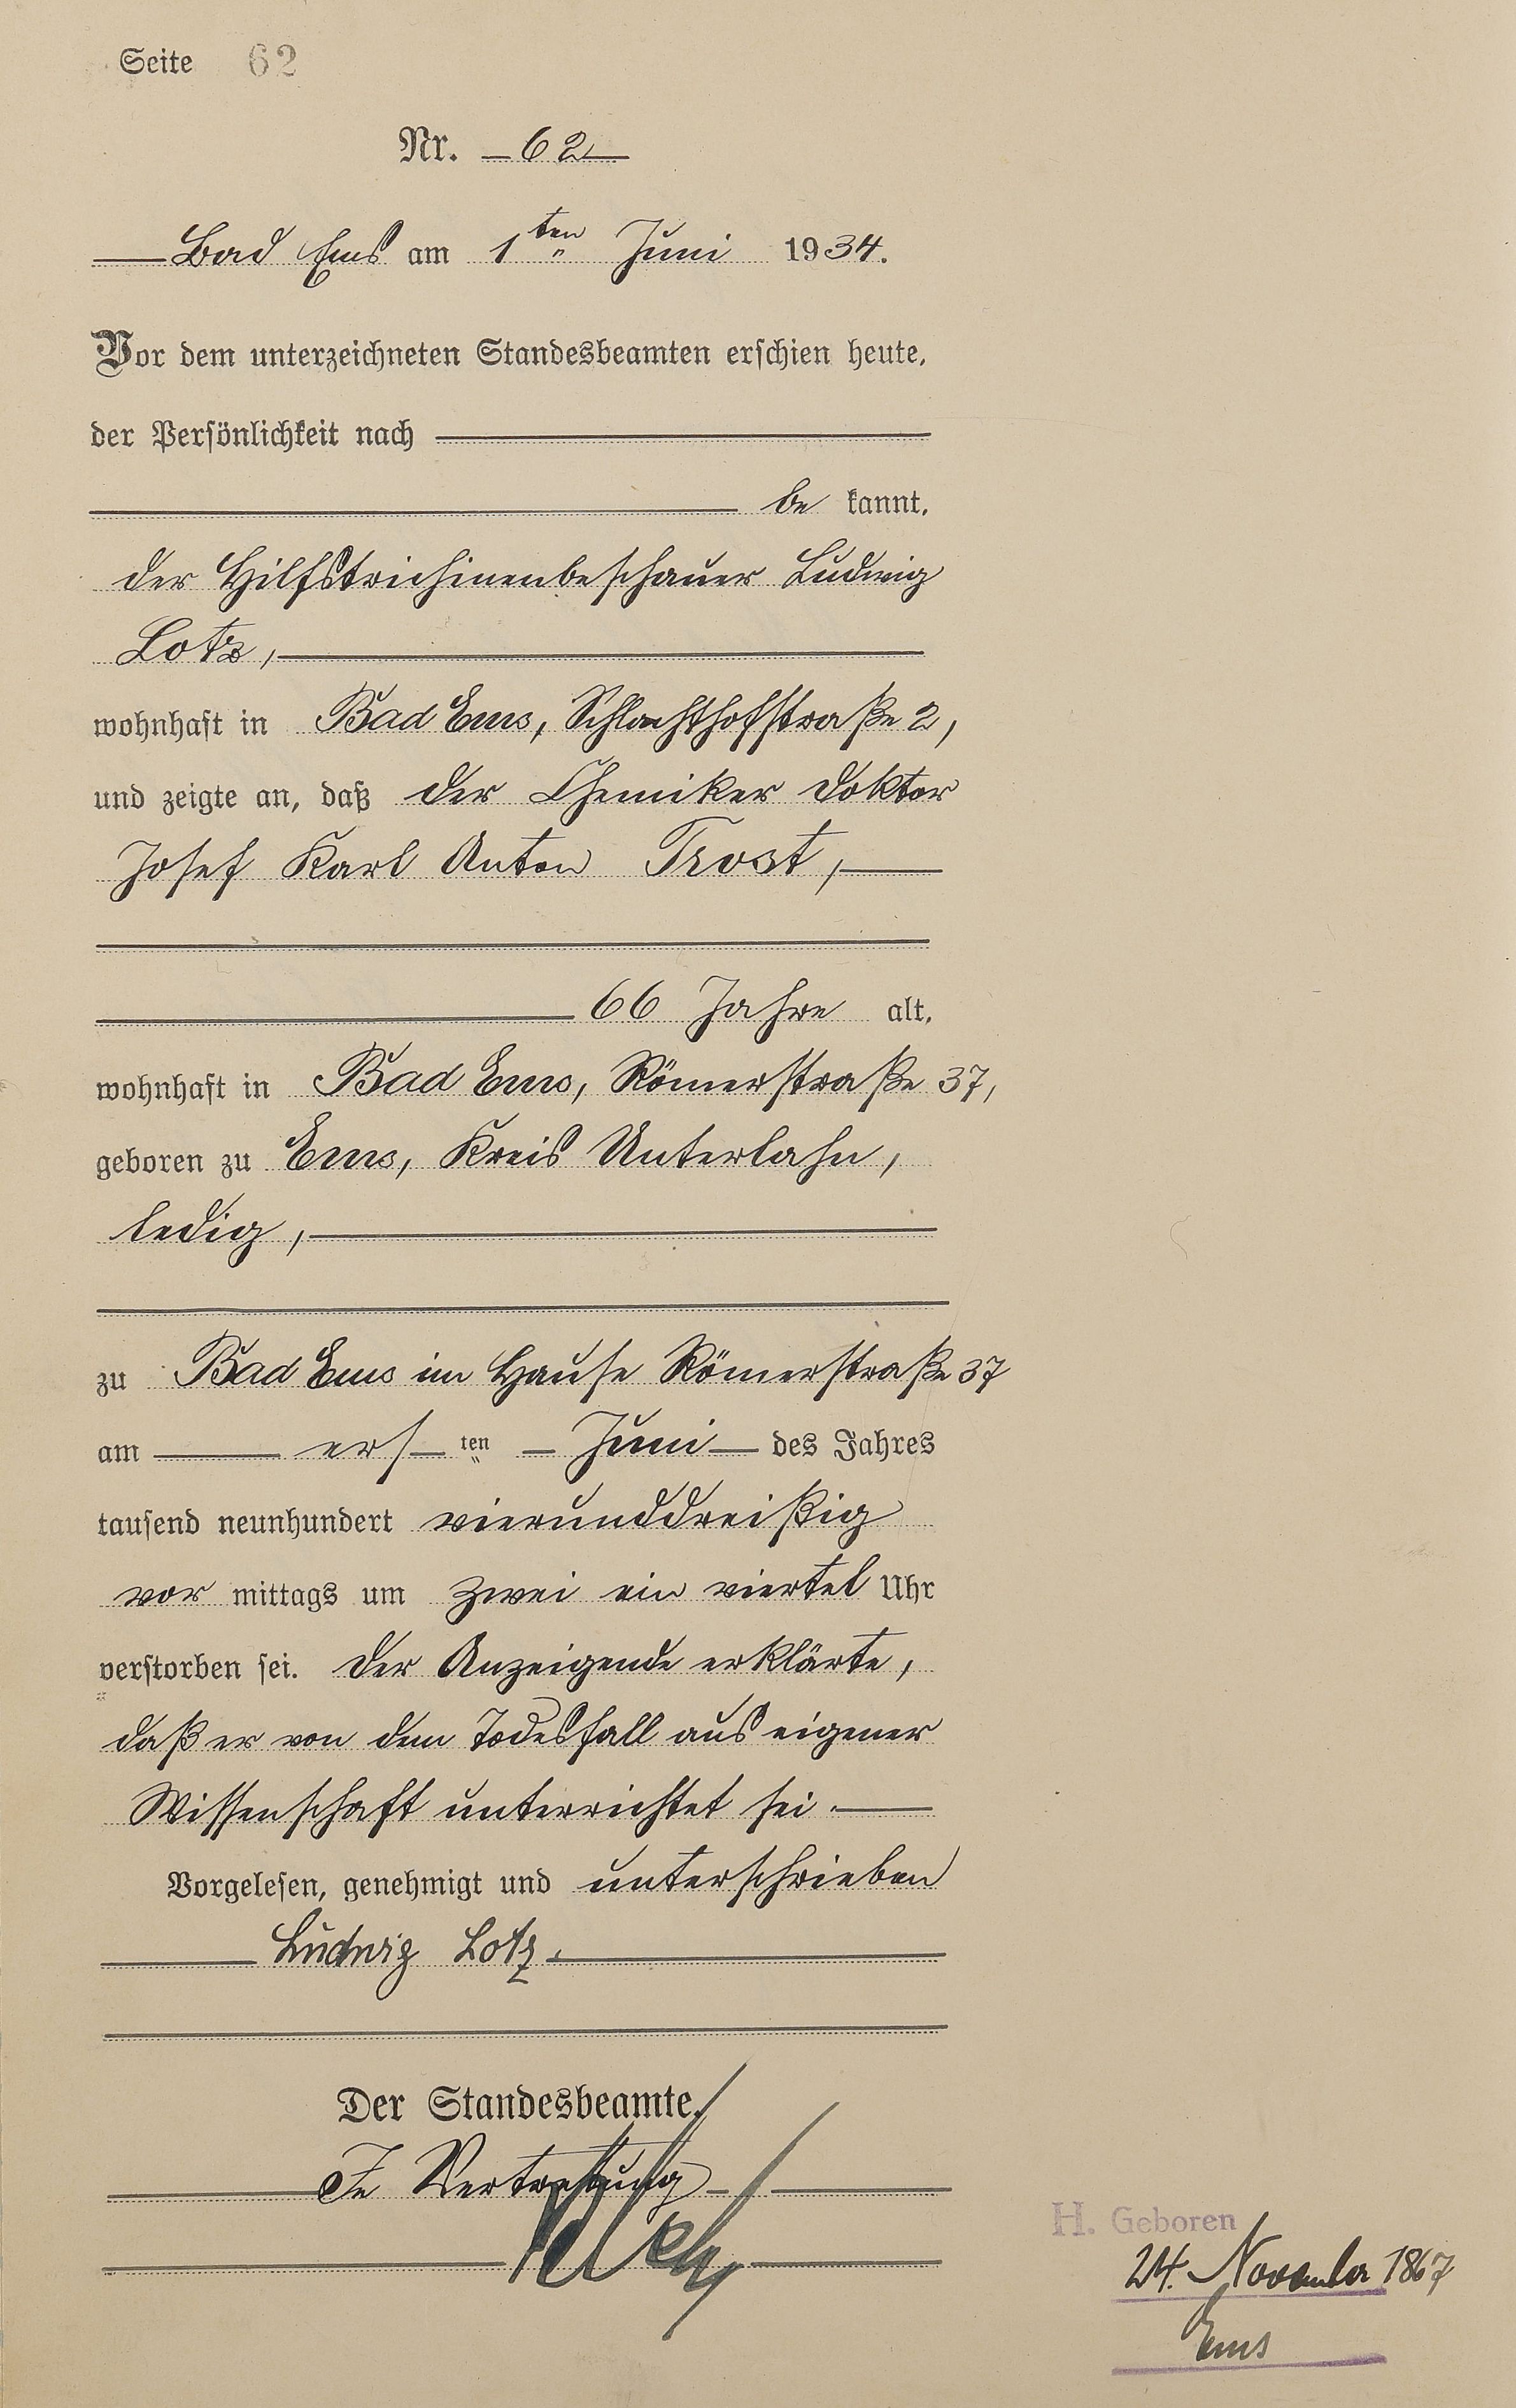 Seite 62
Nr. 62
Bad Ems am 1ten Juni 1934.
Vor dem unterzeichneten Standesbeamten erschien heute,
der Persönlichkeit nach
be kannt,
der Hilfstrichinenbeschauer Ludwig
Lotz,
wohnhaft in Bad Ems, Schlachthofstraße 2,
und zeigte an, daß der Chemiker Doktor
Josef Karl Anton Trost,
66 Jahre alt,
wohnhaft in Bad Ems, Römerstraße 37,
geboren zu Ems, Kreis Unterlahn,
ledig,
zu Bad Ems im Hause Römerstraße 37
am ers ten Juni des Jahres
tausend neunhundert vierunddreißig
vor mittags um zwei ein viertel Uhr
verstorben sei. Der Anzeigende erklärte,
daß er von dem Todesfall aus eigener
Wissenschaft unterrichtet sei.
Vorgelesen, genehmigt und unterschrieben
Ludwig Lotz.
Der Standesbeamte.
In Vertretung
H. Geboren
24. November 1867
Ems